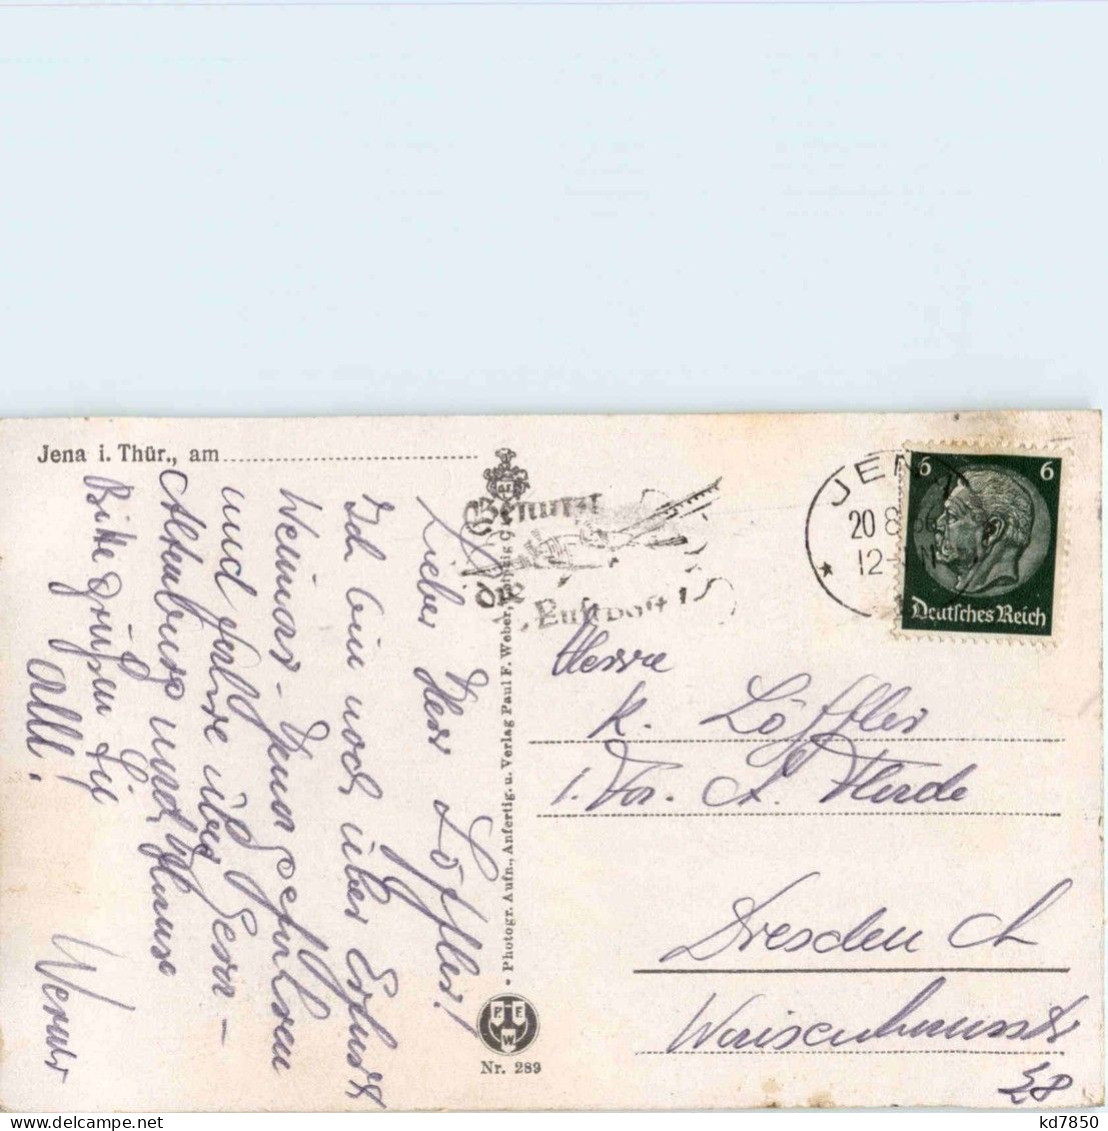 Jena i. Thür., am
Lieber Herr Löffler!
Ich bin noch über Erfurt
Weimar - Jena gefahren
und fahre über Gera -
Altenburg nach Hause
Bitte grüßen Sie
alle!
Werner
Photogr. Aufn., Anfertig. u. Verlag Paul F. Weber, Leipzig
P. F.
W.
Nr. 289
Benutzt
die
Luftpost!
JENA
20 8
12-
6 6
Deutsches Reich
Herrn
K. Löffler
Dresden A
Waisenhausstr
28
kd7850